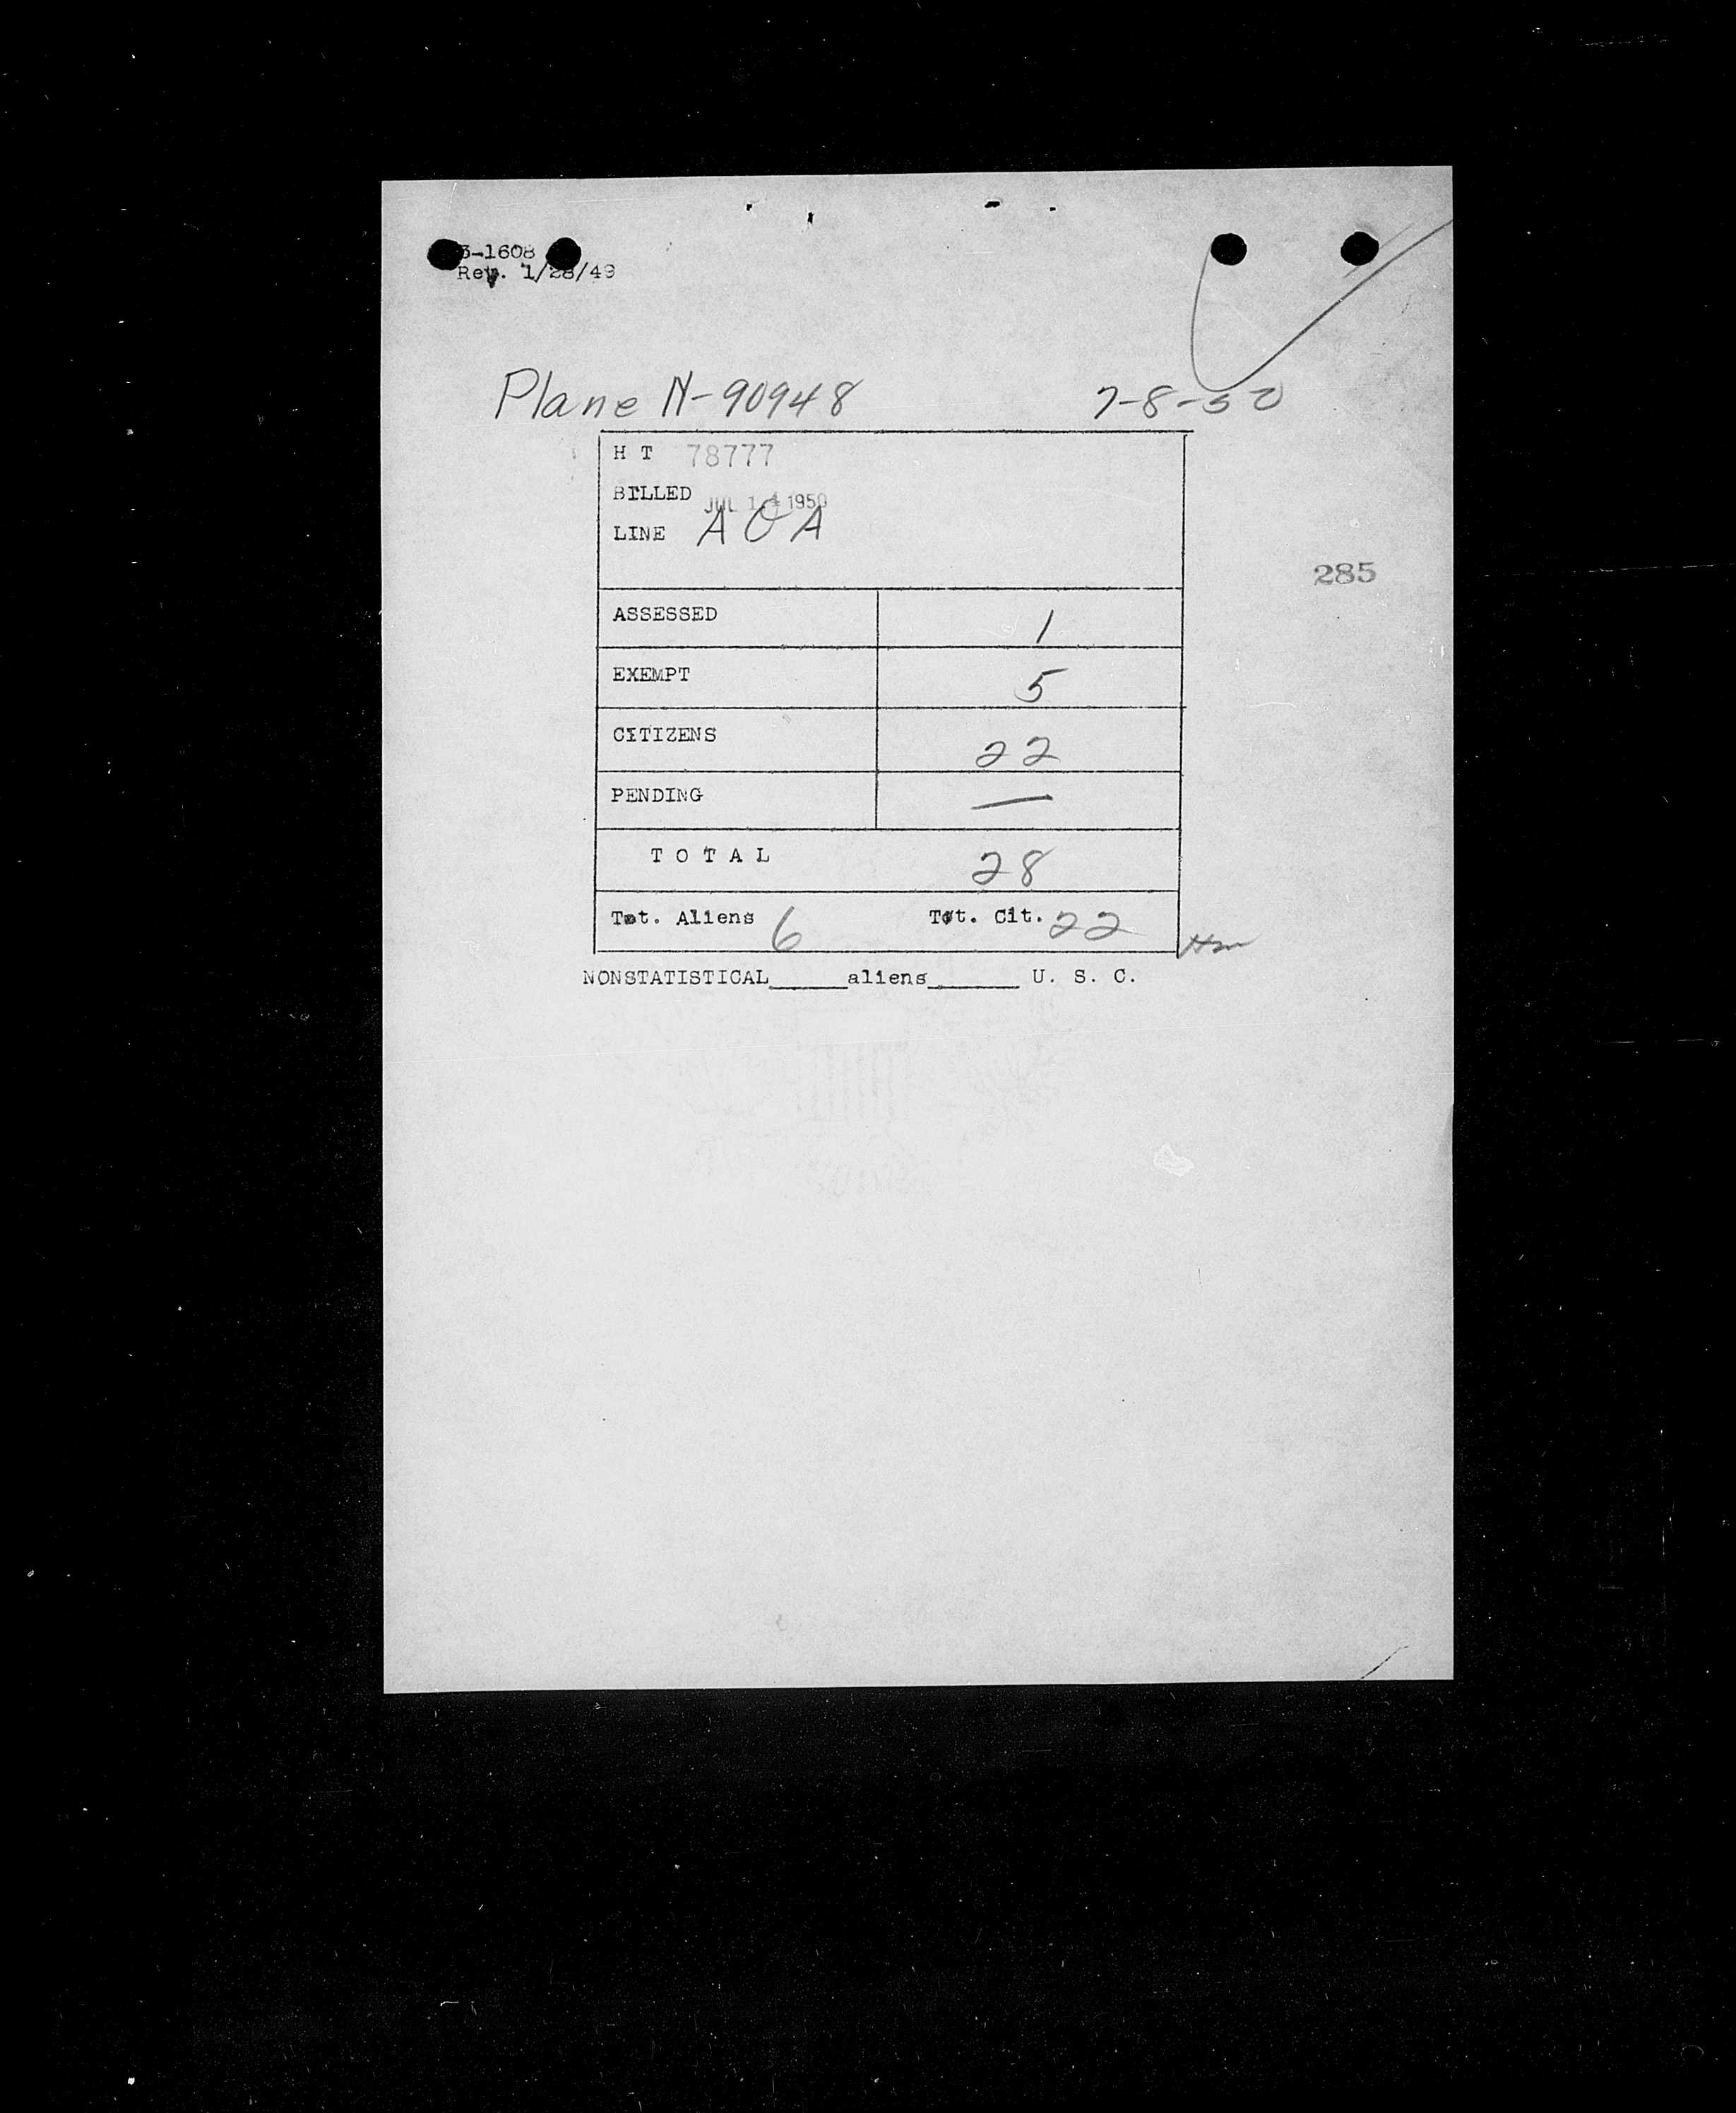 3-1608
Rev. 1/28/49
Plane N-90948 7-8-50
H T 78777
BILLED JUL 14 1950
LINE AOA
285
ASSESSED 1
EXEMPT 5
CITIZENS 22
PENDING —
T O T A L 28
Tot. Aliens 6 Tot. Cit. 22
NONSTATISTICAL_____aliens______ U. S. C.